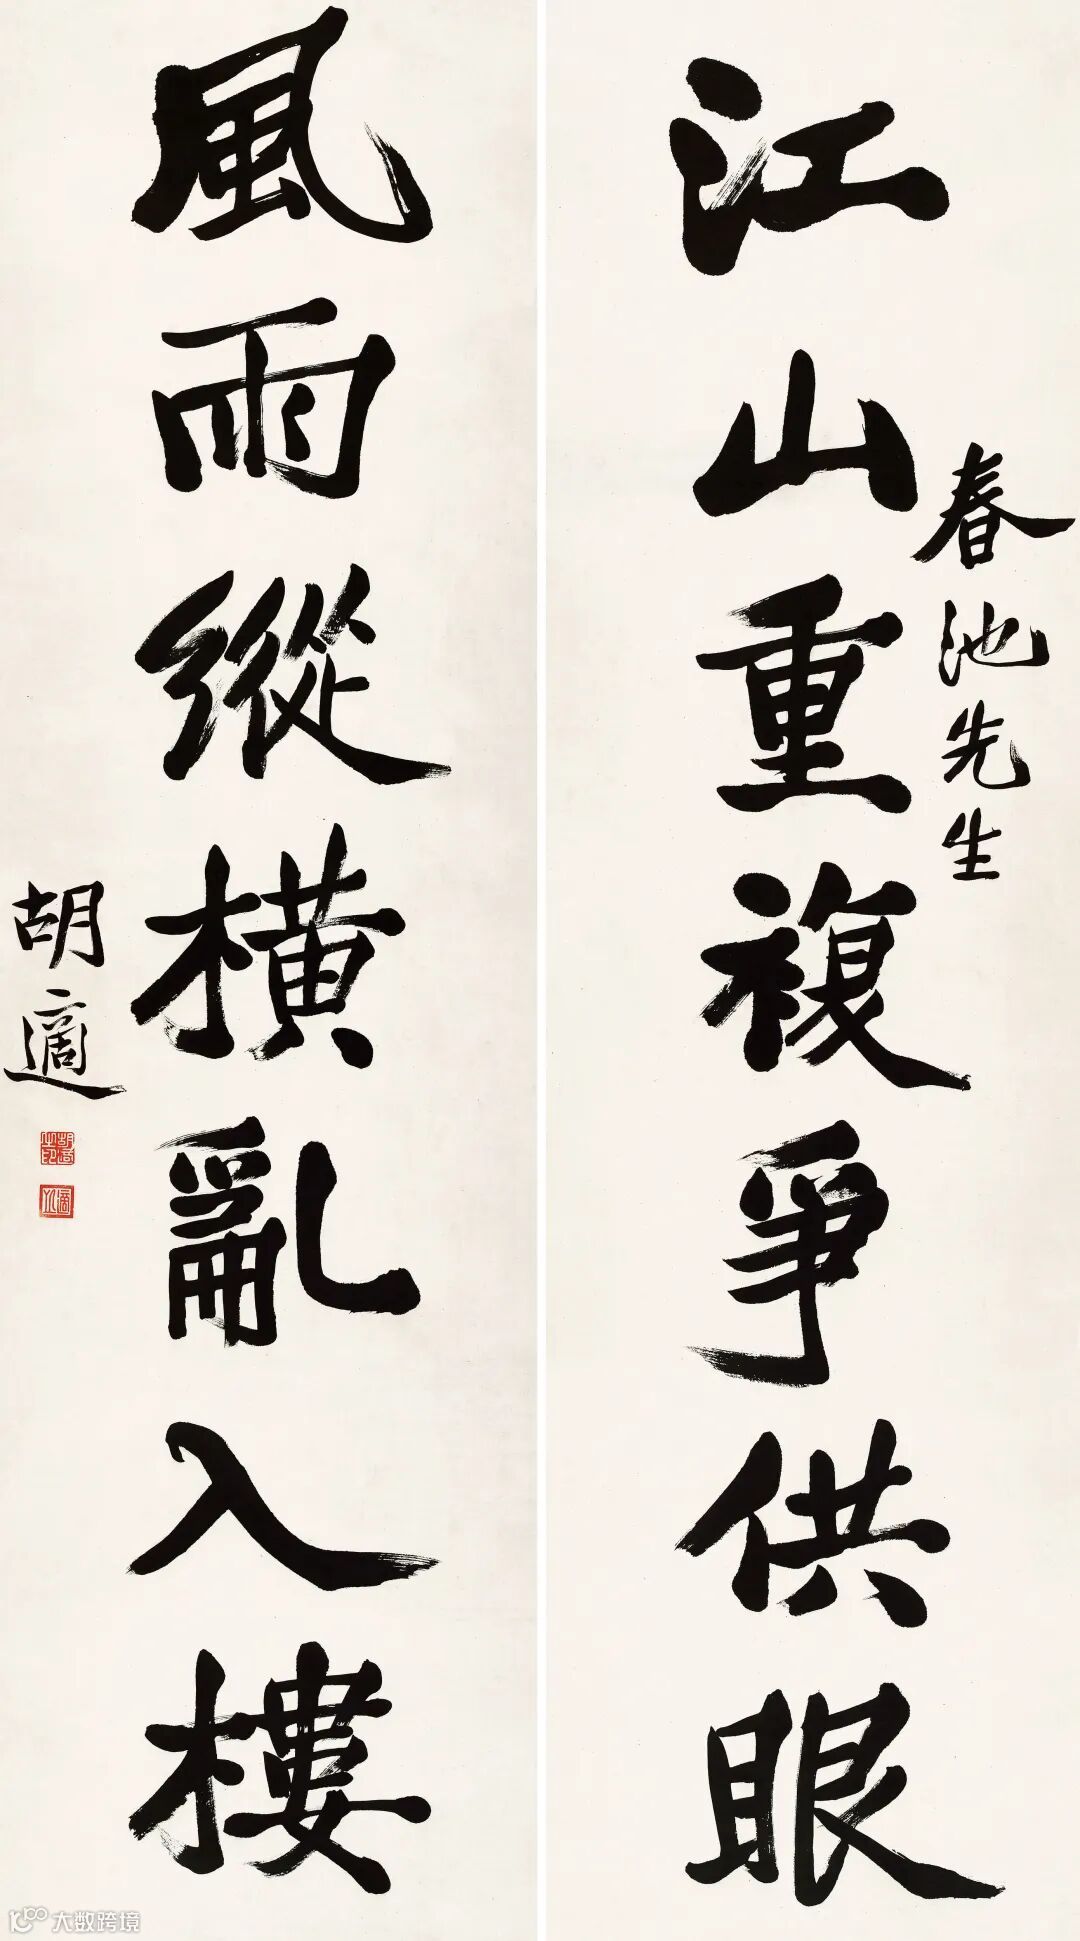 春池先生
江山重複爭供眼
風雨縱橫亂入樓
胡適
胡適之印
適之
大数跨境